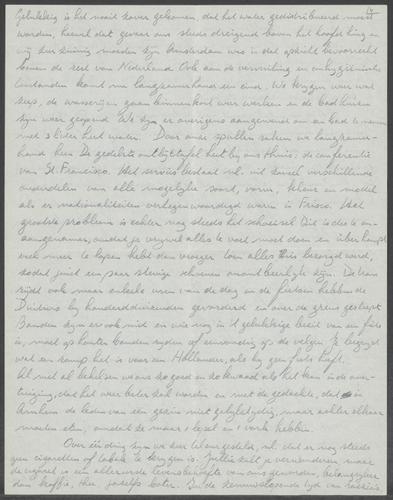 Gelukkig is het nooit zover gekomen, dat het water gedistribueerd moest
worden, hoewel dat gevaar ons steeds dreigend boven het hoofd hing en
wij zeer zuinig moesten zijn Amsterdam was in dat opzicht bevoorrecht
boven de rest van Nederland Ook aan de vervuiling en onhygiënische
toestanden komt nu langzamerhand een eind. We krijgen weer wat
zeep, de wasserijen gaan binnenkort weer werken en de badhuizen
zijn weer geopend We zijn er overigens aangewend om een bad te nemen
met 3 liter heet water. Door onze spullen raken we langzamer-
hand heen De gedekte ontbijttafel heet bij ons thuis: de conferentie
van St. Francisco. Het servies bestaat nl. uit zoveel verschillende
onderdelen van alle mogelijke soort, vorm, kleur en model
als er nationaliteiten vertegenwoordigd waren in Frisco. Het
grootste probleem is echter nog steeds het schoeisel Dit is des te on-
aangenamer, omdat je vrijwel alles te voet moet doen en überhaupt
veel meer te lopen hebt dan vroeger toen alles thuis bezorgd werd,
zodat juist een paar stevige schoenen onontbeerlijk zijn. De tram
rijdt ook maar enkele uren van de dag en de fietsen hebben de
Duitsers bij honderdduizenden gevorderd en over de grens gesleept
Banden zijn er ook niet en wie nog in 't gelukkige bezit van een fiets
is, moet op houten banden rijden of eenvoudig op de velgen Je begrijpt
wat een ramp het is voor een Hollander, als hij geen fiets heeft.
Al met al behelpen we ons zo goed en zo kwaad als het kan in de over-
tuiging, dat het weer beter zal worden en met de gedachte, dat ze in
Arnhem de leden van een gezin niet gelijktijdig, maar achter elkaar
moeten eten, omdat ze maar 1 lepel en 1 vork hebben.
Over één ding zijn we zeer teleurgesteld, nl. dat er nog steeds
geen cigaretten of tabak te krijgen is. Jullie zult je verwonderen, maar
de cigaret is een allereerste levensbehoefte van ons geworden, belangrijker
dan koffie, thee, jazelfs boter. In de zenuwslopende tijd van razzia's,